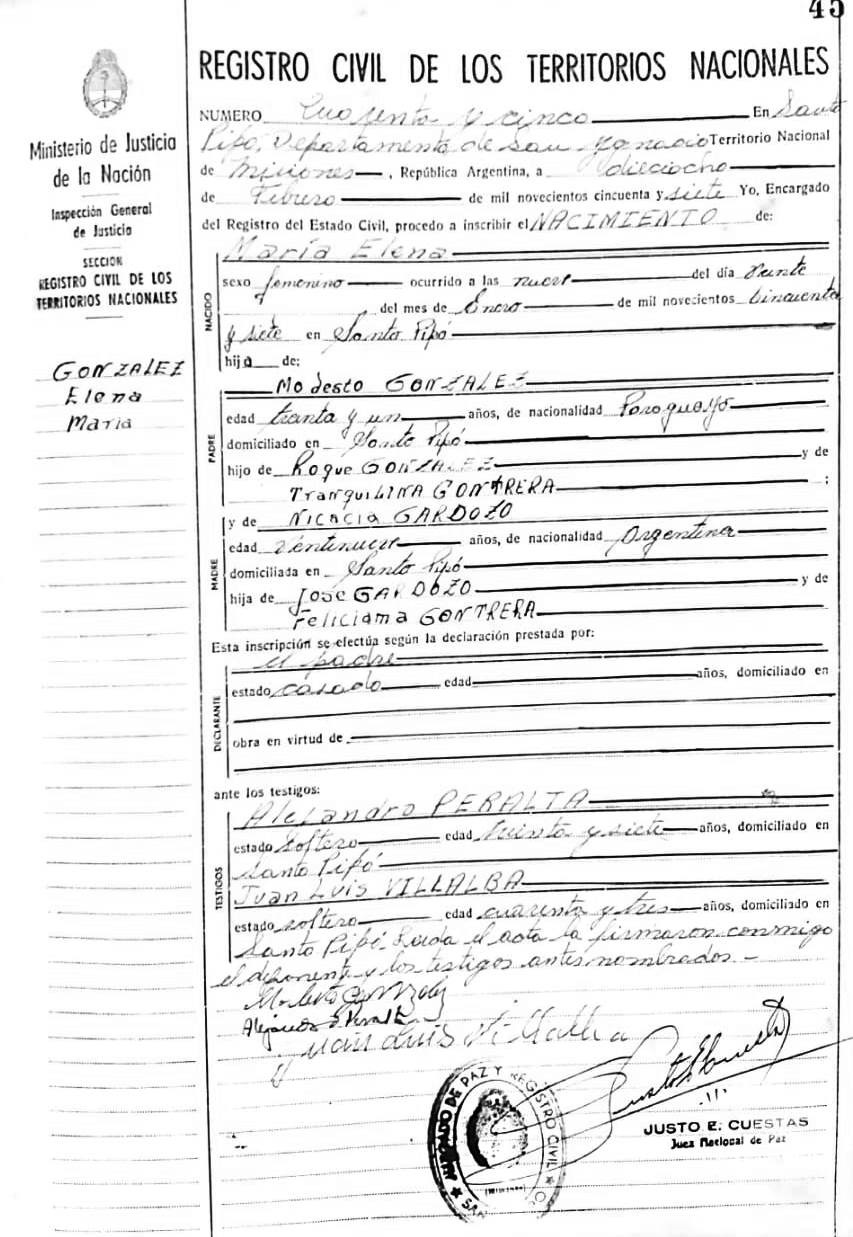 45
REGISTRO CIVIL DE LOS TERRITORIOS NACIONALES
Ministerio de Justicia
de la Nación
Inspección General
de Justicia
SECCION
REGISTRO CIVIL DE LOS
TERRITORIOS NACIONALES
GONZALEZ
Elena
Maria
NUMERO Cuarenta y cinco En Santo
Pipó, Departamento de San Ygnacio Territorio Nacional
de Misiones, República Argentina, a dieciocho
de Febrero de mil novecientos cincuenta y siete Yo, Encargado
del Registro del Estado Civil, procedo a inscribir el NACIMIENTO de:
NACIDO
María Elena
sexo femenino ocurrido a las nueve del día Veinte
del mes de Enero de mil novecientos Cincuenta
y siete en Santo Pipó
hija de:
PADRE
Modesto GONZALEZ
edad treinta y un años, de nacionalidad Paraguayo
domiciliado en Santo Pipó
hijo de Roque GONZALEZ y de
TranquiLINA GONTRERA ;
MADRE
y de NICACIA GARDOZO
edad Ventinueve años, de nacionalidad Argentina
domiciliada en Santo Pipó
hija de Jose GARDOZO y de
Feliciana GONTRERA
Esta inscripción se efectúa según la declaración prestada por:
DECLARANTE
el padre
estado casado edad años, domiciliado en
obra en virtud de
ante los testigos:
TESTIGOS
Alejandro PERALTA
estado Soltero edad treinta y siete años, domiciliado en
Santo Pipó
Juan Luis VILLALBA
estado soltero edad cuarenta y tres años, domiciliado en
Santo Pipó. Leida el acta la firmaron conmigo
el deponente y los testigos antes nombrados -
Modesto Gonzalez
Alejandro Peralta
Juan Luis Villalba
JUZGADO DE PAZ Y REGISTRO CIVIL
JUSTO E. CUESTAS
Juez Nacional de Paz